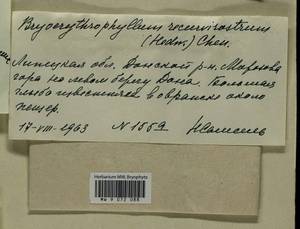 Bryoerythrophyllum recurvirostrum
(Hedw.) Chen.
Липецкая обл. Донской р-н. Морозова
гора на левом берегу Дона. Большая
глыба известняка в овражке около
пещер.
17-VIII-1963 N 155a
Herbarium MW, Bryophyta
MW 9 072 088